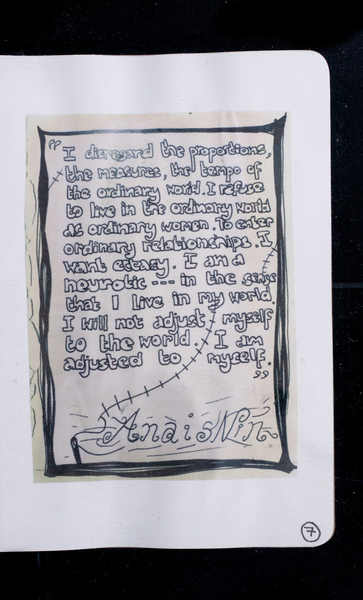 "I disregard the proportions,
the measures, the tempo of
the ordinary world. I refuse
to live in the ordinary world
as ordinary women. To enter
ordinary relationships. I
want ecstasy. I am a
neurotic --- in the sense
that I live in my world.
I will not adjust myself
to the world. I am
adjusted to myself.
"
Anais Nin
7